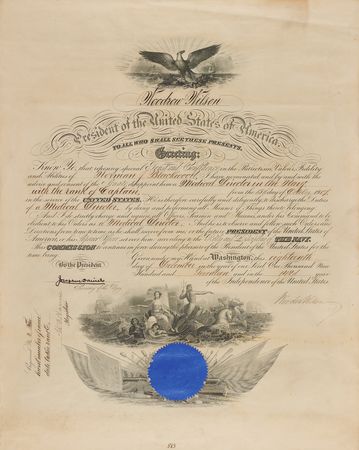 Woodrow Wilson
President of the United States of America.
TO ALL WHO SHALL SEE THESE PRESENTS,
Greeting:
Know Ye, that reposing special Trust and Confidence in the Patriotism, Valor, Fidelity
and Abilities of Norman J. Blackwood I have nominated and by and with the
advice and consent of the Senate, do appoint him a Medical Director in the Navy
with the rank of Captain from the 15 day of October 1917,
in the service of the UNITED STATES. He is therefore carefully and diligently to discharge the Duties
of a Medical Director by doing and performing all Manner of Things thereto belonging.
And I do strictly charge and require all Officers, Seamen and Marines under his Command to be
obedient to his Orders as a Medical Director. And he is to observe and follow such Orders and
Directions from time to time as he shall receive from me, or the future PRESIDENT of the United States of
America, or his Superior Officer set over him, according to the Rules and Discipline of THE NAVY.
This COMMISSION to continue in force during the pleasure of the President of the United States for the
time being.
Given under my Hand at Washington, this eighteenth
day of December in the year of our Lord One Thousand Nine
Hundred and and in the
of the Independence of the United States.
By the President:
Josephus Daniels
Secretary of the Navy
Woodrow Wilson
Registered No.
513